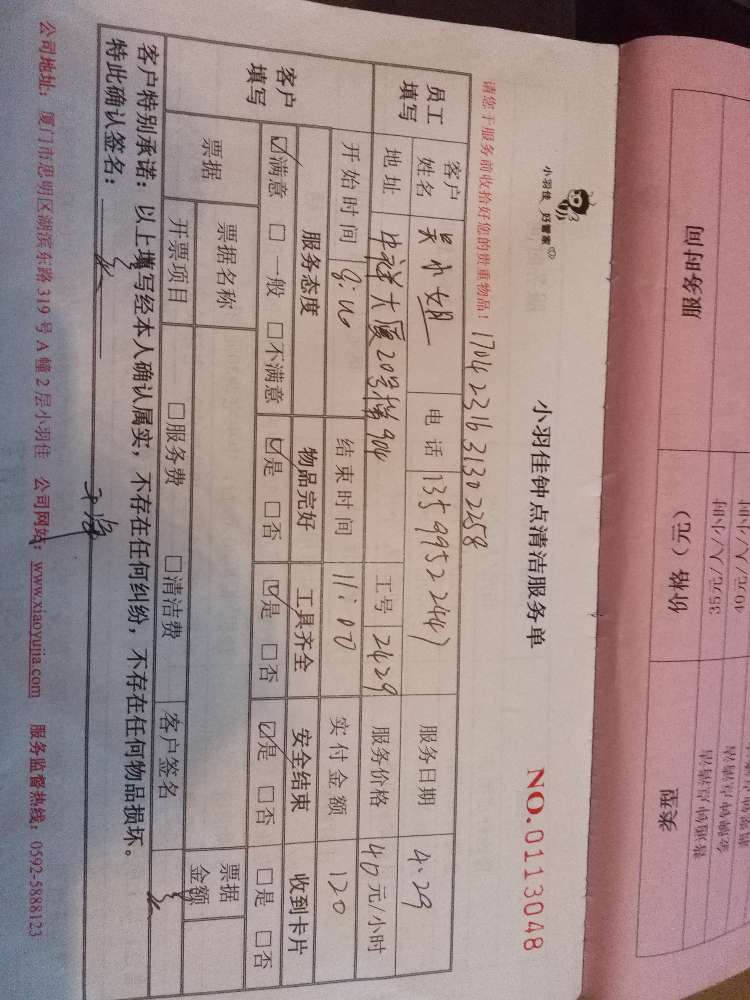 小羽佳 好管家
小羽佳钟点清洁服务单
NO.0113048
请您于服务前收拾好您的贵重物品！
1704231631302258
员工填写
客户姓名 吴小姐 电话 13599522447 服务日期 4.29
地址 中祥大厦20号楼904 工号 2429 服务价格 40元/小时
开始时间 结束时间 11:00 实付金额 120
客户填写
服务态度 物品完好 工具齐全 安全结束 收到卡片
☑满意 □一般 □不满意 ☑是 □否 ☑是 □否 ☑是 □否 □是 □否
票据 票据名称 票据金额
开票项目 □服务费 □清洁费 客户签名
客户特别承诺：以上填写经本人确认属实，不存在任何纠纷，不存在任何物品损坏。
特此确认签名：
公司地址：厦门市思明区湖滨东路319号A幢2层小羽佳 公司网站：www.xiaoyujia.com 服务监督热线：0592-5888123
服务时间 价格（元） 类型
40元/人/小时
35元/人/小时